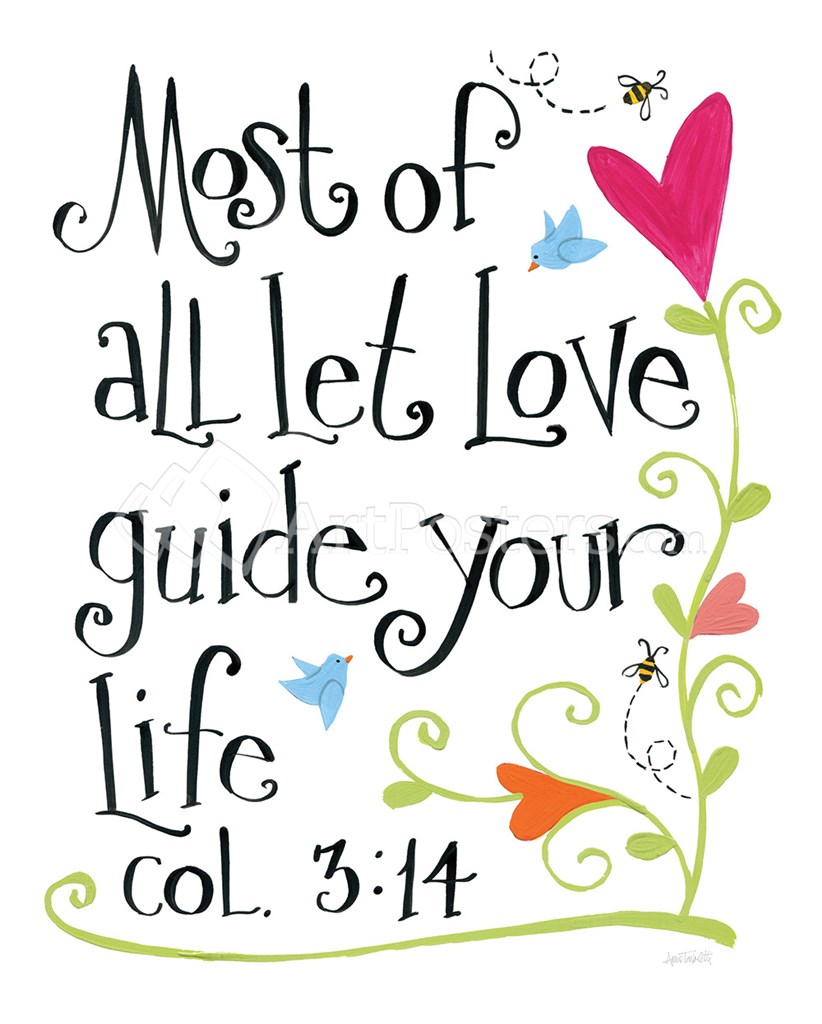 Most of
all let Love
guide your
Life
COL. 3:14
ArtPosters.com